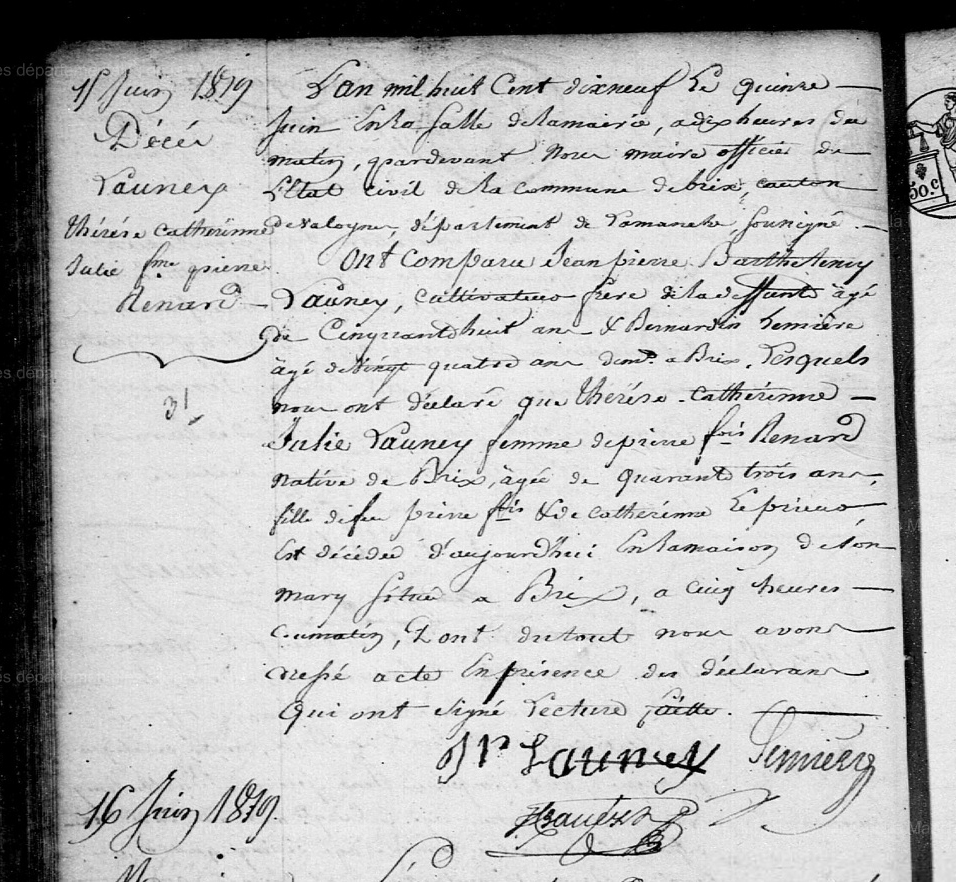 15 Juin 1819
Décés
Launey
thérése catherinne
Julie fme pierre
Renard
31
L'an mil huit Cent dixneuf Le quinze
Juin En la Salle de la mairie, a dix heures du
matin, pardevant Nous maire officier de
L'Etat civil de la commune de brix, canton
de valognes, département de Lamanche, soussigné.
Ont Comparu Jean pierre Barthelemy
Launey, cultivateur frere de la deffunte âgé
de Cinquante huit ans & Bernardin Lemiére
âgé de vingt quatre ans dem.t a Brix, Lesquels
nous ont déclaré que thérése Catherinne
Julie Launey femme de pierre fois Renard
native de Brix, âgée de quarante trois ans,
fille de feu pierre fois & de catherinne Leprieur
Est décédée d'aujourd'huï En la maison de son
mary située a Brix, a cinq heures
du matin, Dont du tout nous avons
dressé acte En présence des déclarans
Qui ont signé Lecture faitte.
JP Launey Lemiere
16 Juin 1819.
50.c